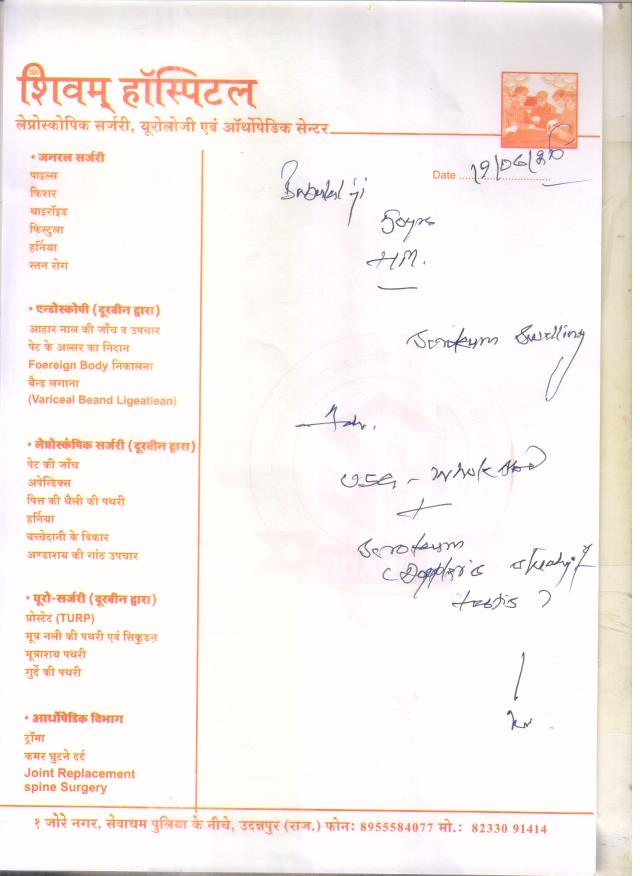 शिवम् हॉस्पिटल
लेप्रोस्कोपिक सर्जरी, यूरोलोजी एवं ऑर्थोपेडिक सेन्टर
Date 19/06/20
• जनरल सर्जरी
पाइल्स
फिशर
थाइरॉइड
फिस्टुला
हर्निया
स्तन रोग
• एन्डोस्कोपी (दूरबीन द्वारा)
आहार नाल की जाँच व उपचार
पेट के अल्सर का निदान
Foereign Body निकालना
बैन्ड लगाना
(Variceal Beand Ligeatiean)
• लेप्रोस्कंपिक सर्जरी (दूरबीन द्वारा)
पेट की जाँच
अपेन्डिक्स
पित्त की थैली की पथरी
हर्निया
बच्चेदानी के विकार
अण्डाशय की गांठ उपचार
• यूरो-सर्जरी (दूरबीन द्वारा)
प्रोस्टेट (TURP)
मूत्र नली की पथरी एवं सिकुडन
मूत्राशय पथरी
गुर्दे की पथरी
• आर्थोपेडिक विभाग
ट्रॉमा
कमर घुटने दर्द
Joint Replacement
spine Surgery
ji
50yrs
HM.
Scrotum Swelling
Adv.
USG - Whole Abd
+
Scrotum
(Doppler study of
testis)
१ जोरे नगर, सेवाधम पुलिया के नीचे, उदन्नपुर (राज.) फोनः 8955584077 मो.: 82330 91414